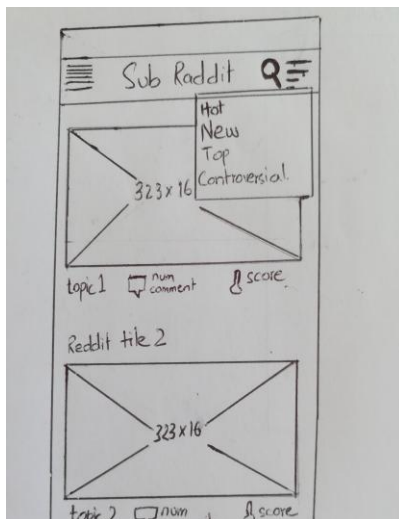 Sub Raddit
Hot
New
Top
Controversial
323x16
topic 1 num comment score
Reddit title 2
323x16
topic 2 num score